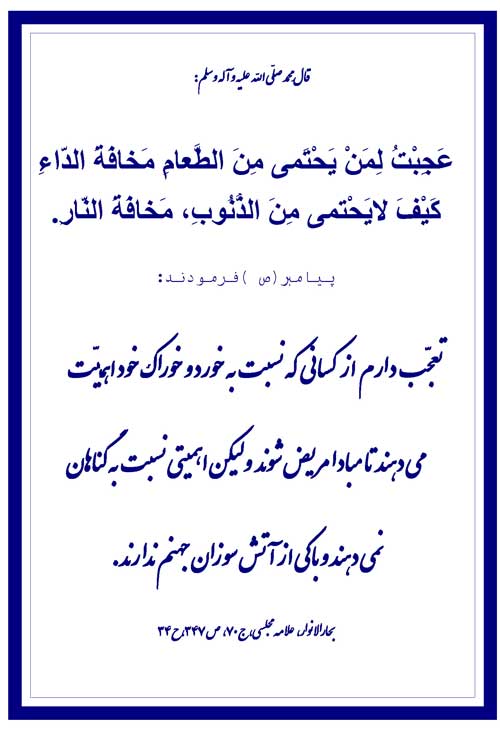 قال محمد صلّی الله علیه وآله وسلم:
عَجِبْتُ لِمَنْ يَحْتَمى مِنَ الطَّعامِ مَخافَةَ الدّاءِ
كَيْفَ لايَحْتمى مِنَ الذُّنُوبِ، مَخافَةَ النّارِ.
پیامبر(ص )فرمودند:
تعجّب دارم از کسانی که نسبت به خورد و خوراک خود اهمیّت
می دهند تا مبادا مریض شوند ولیکن اهمیتی نسبت به گناهان
نمی دهند و باکی از آتش سوزان جهنم ندارند.
بحارالانوار، علامه مجلسی، ج ۷۰، ص ۳۴۷، ح ۳۴